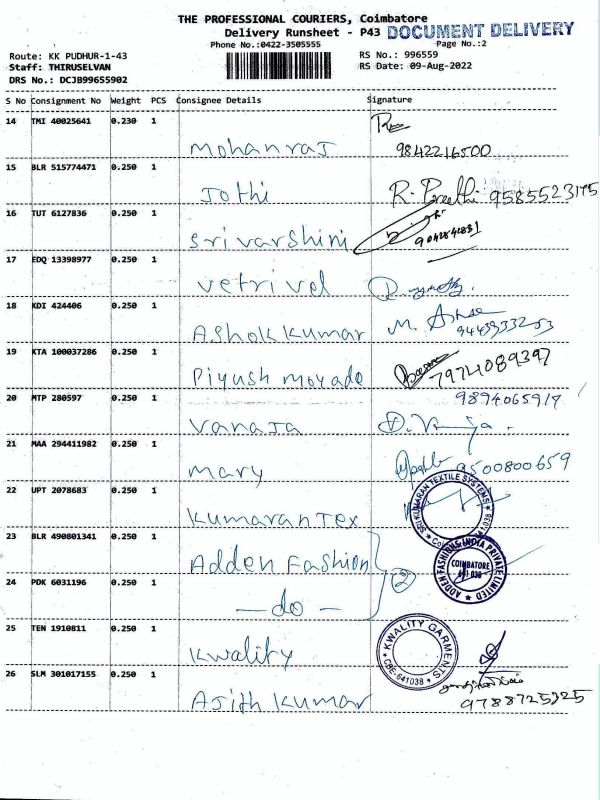 THE PROFESSIONAL COURIERS, Coimbatore
Delivery Runsheet - P43 DOCUMENT DELIVERY
Phone No.:0422-3505555 Page No.:2
Route: KK PUDHUR-1-43 RS No.: 996559
Staff: THIRUSELVAN RS Date: 09-Aug-2022
DRS No.: DCJB99655902
S No Consignment No Weight PCS Consignee Details Signature
14 TMI 40025641 0.230 1
Mohanraj 9842216500
15 BLR 515774471 0.250 1
Jothi R. Preethi 9585523175
16 TUT 6127836 0.250 1
Srivarshini
17 EDQ 13398977 0.250 1
Vetrivel
18 KDI 424406 0.250 1
Ashok Kumar M.
9443933253
19 KTA 100037286 0.250 1
Piyush Moyade 7974089397
20 MTP 280597 0.250 1 9894065917
Vanaja
21 MAA 294411982 0.250 1
Mary 9500800659
22 UPT 2078683 0.250 1
Kumaran Tex SRI KUMARAN TEXTILE SYSTEMS
23 BLR 490801341 0.250 1
Adden Fashion ADDEN FASHIONS INDIA PRIVATE LIMITED COIMBATORE 641 038
24 PDK 6031196 0.250 1 2
— do —
25 TEN 1910811 0.250 1
Kwality KWALITY GARMENTS CBE-641038
26 SLM 301017155 0.250 1
Ajith Kumar 9788725325